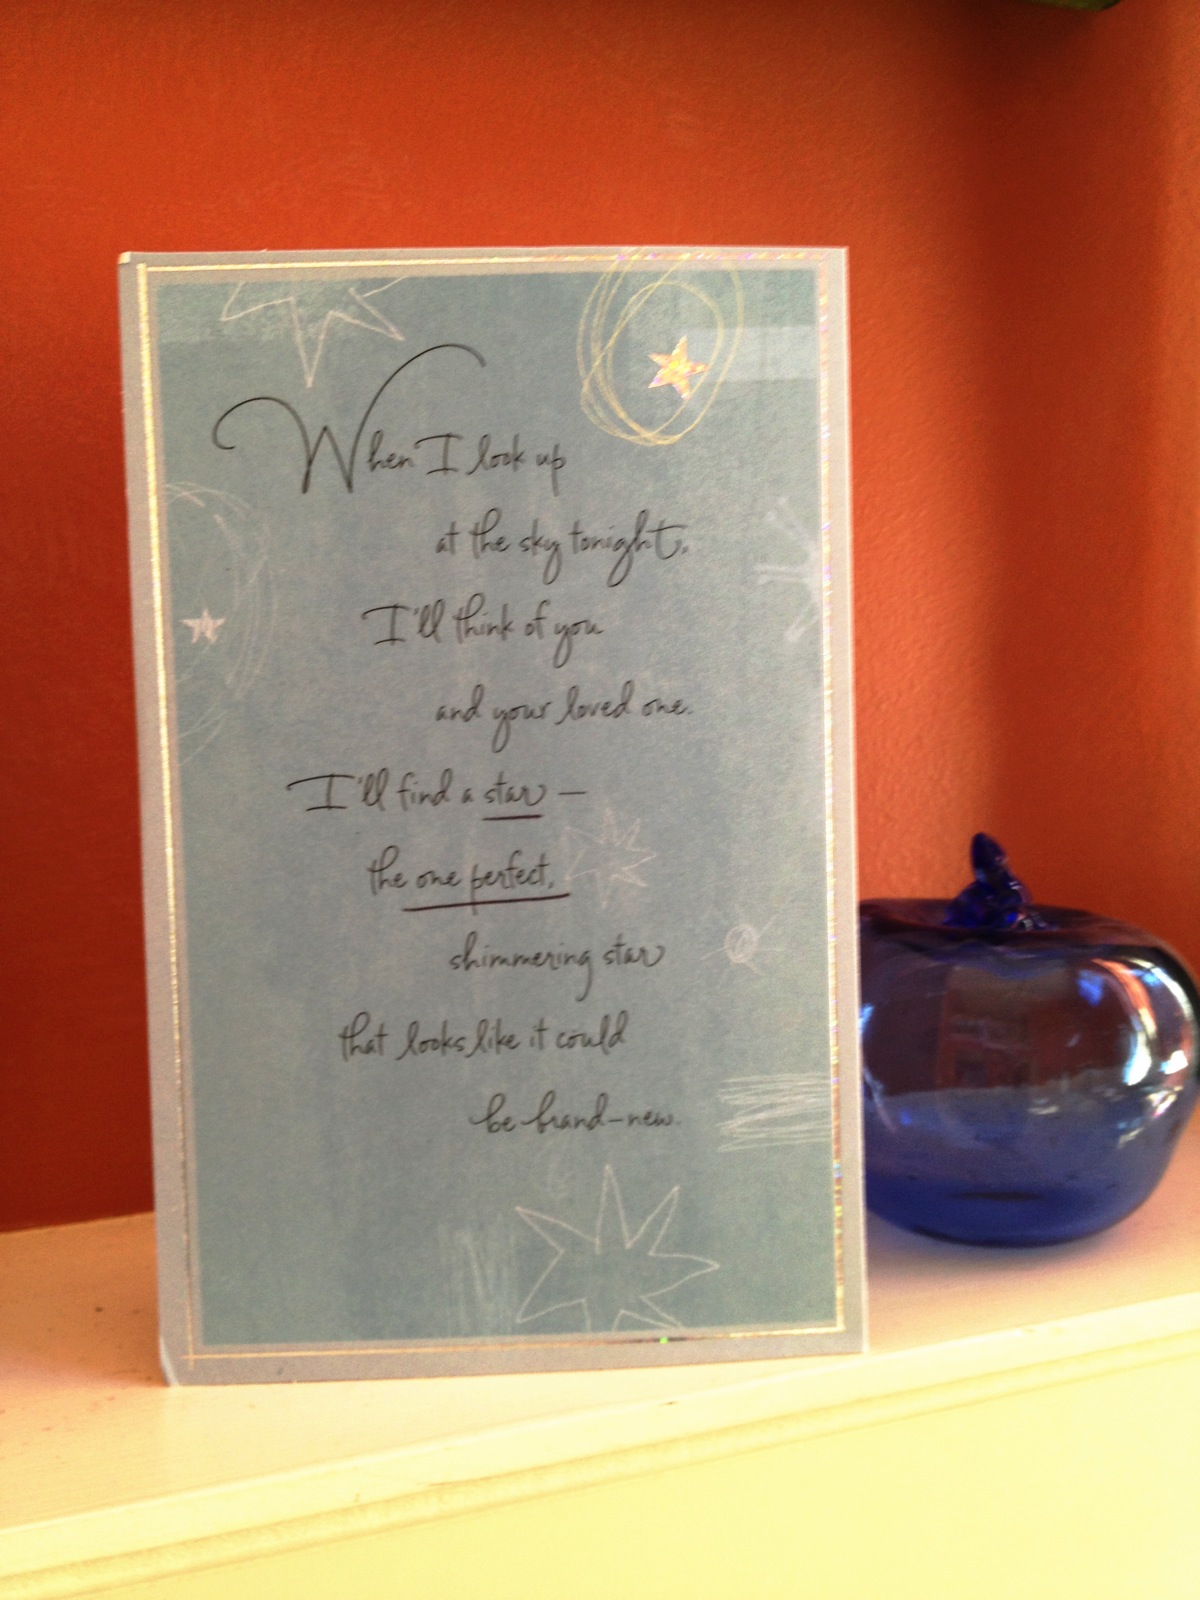 When I look up
at the sky tonight,
I'll think of you
and your loved one.
I'll find a star —
the one perfect,
shimmering star
that looks like it could
be brand-new.